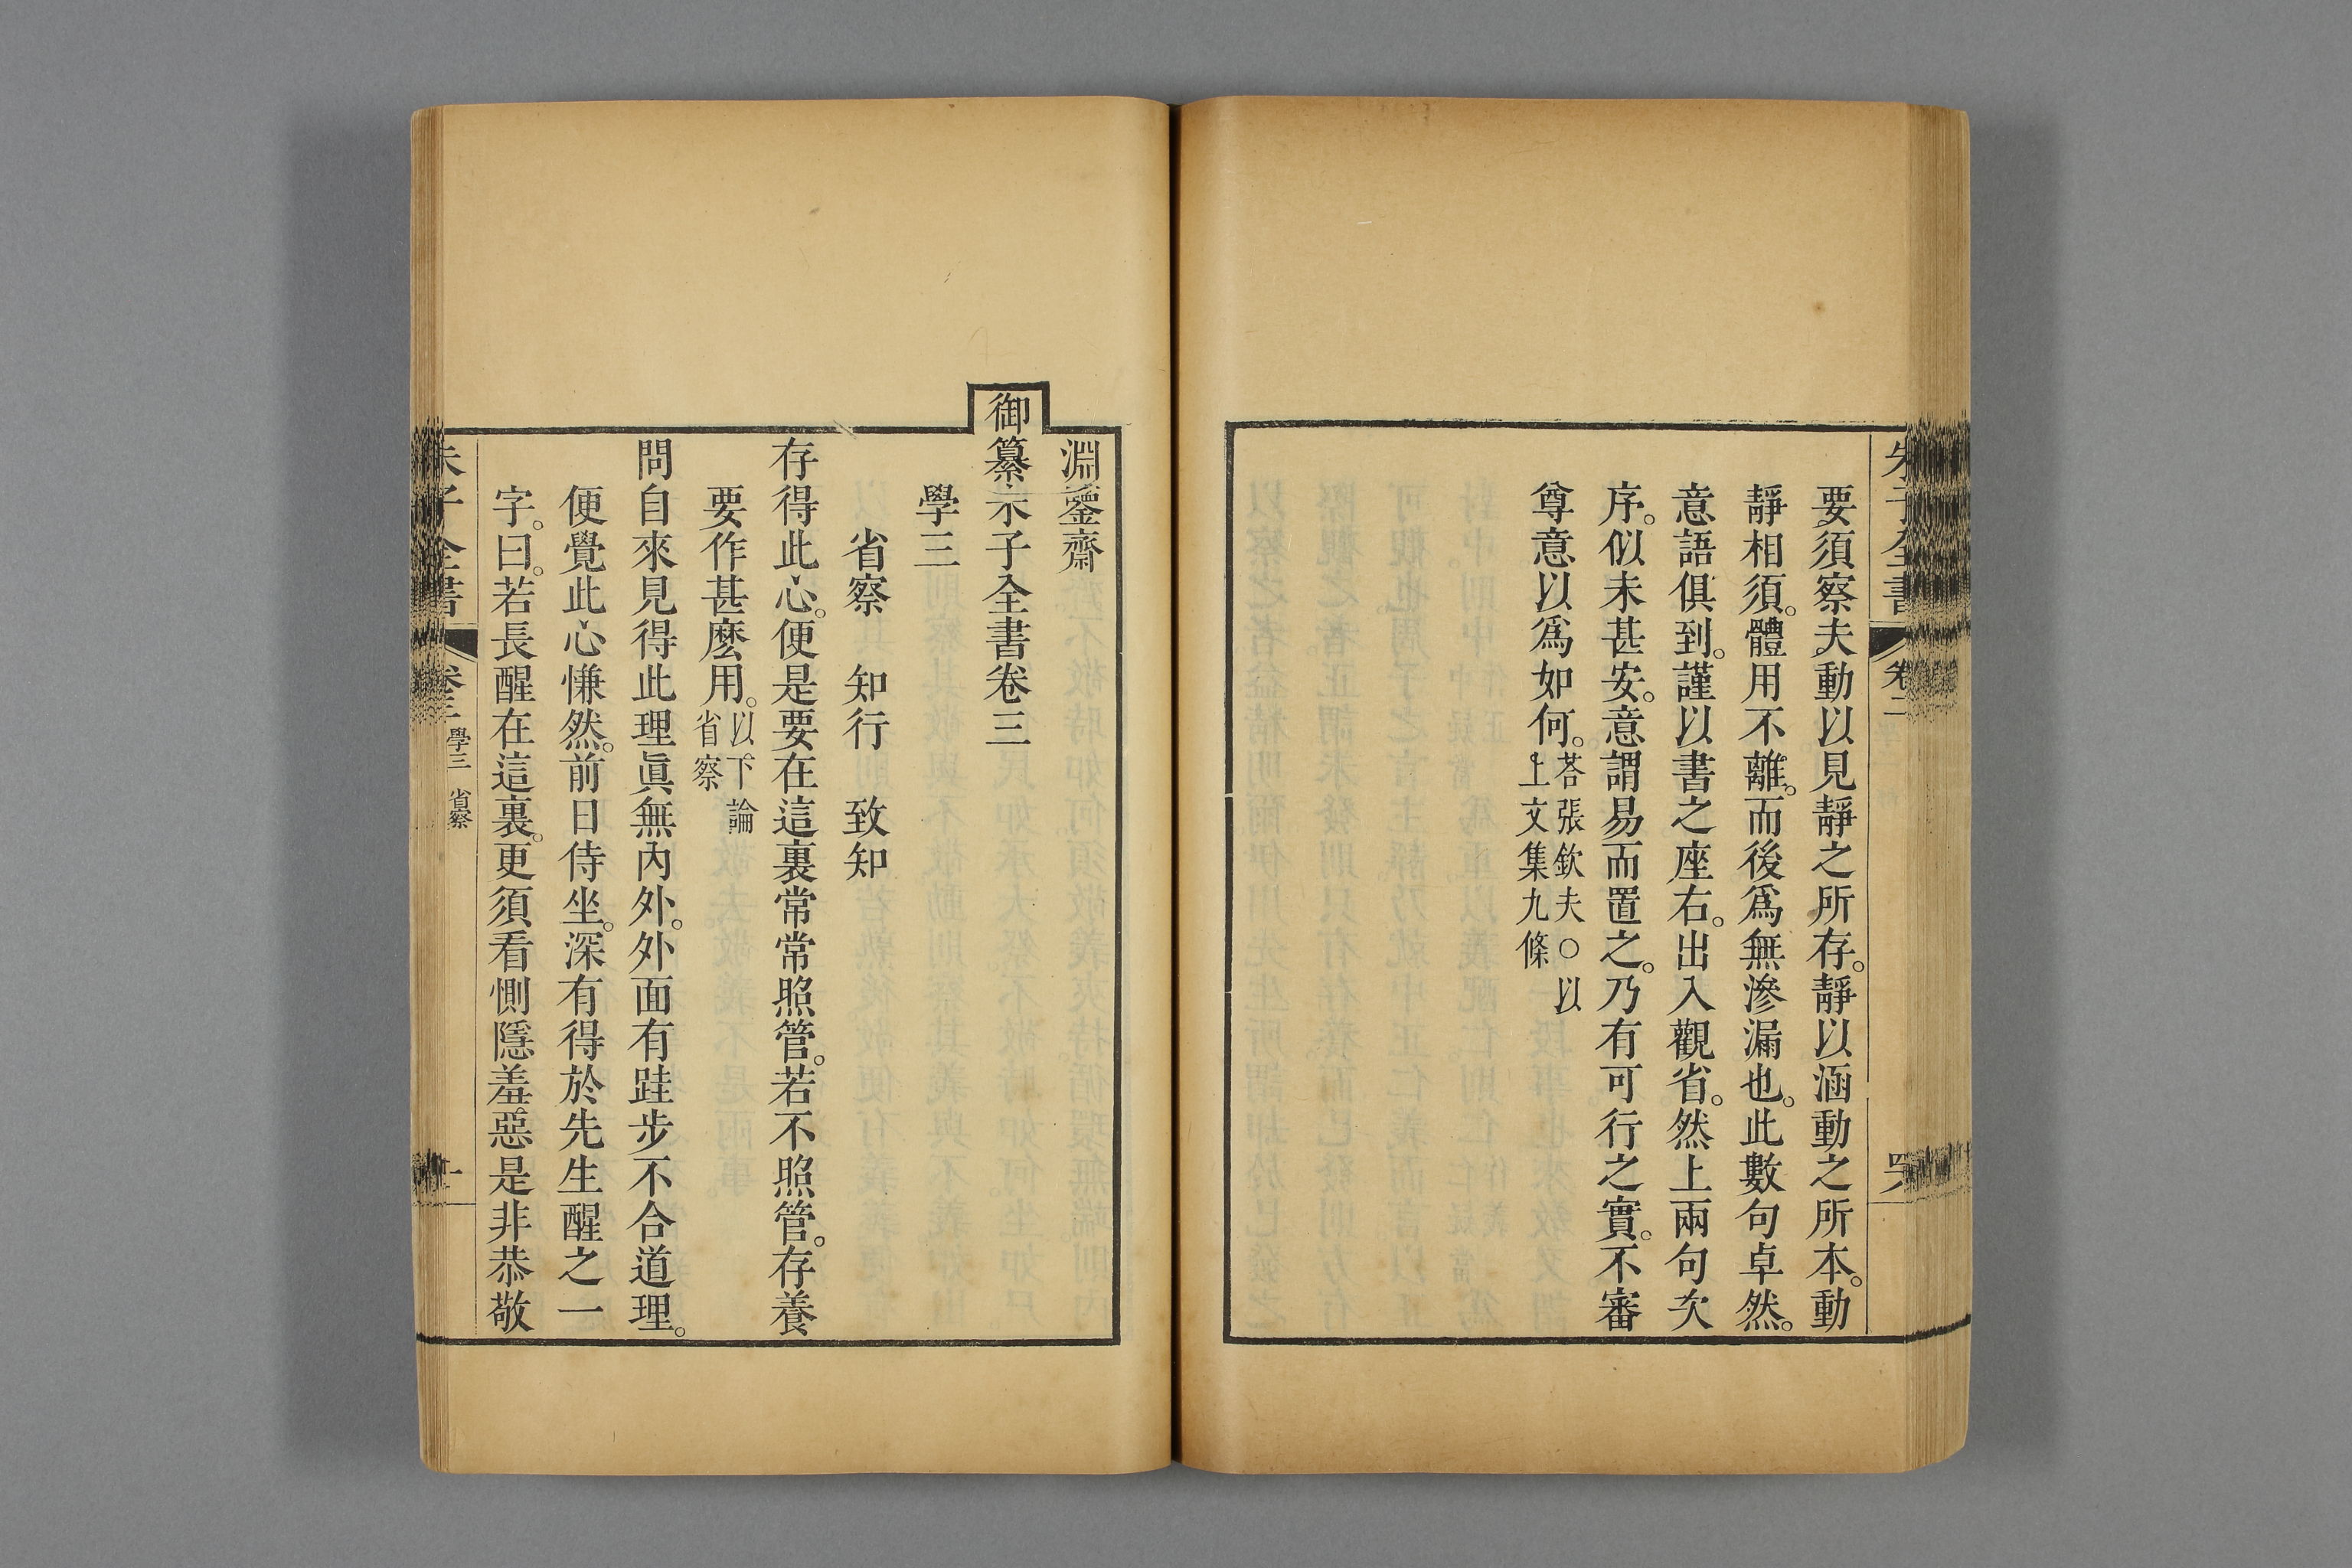 朱子全書 卷二
要須察夫動以見靜之所存。靜以涵動之所本。動
靜相須。體用不離。而後爲無滲漏也。此數句卓然。
意語俱到。謹以書之座右。出入觀省。然上兩句次
序。似未甚安。意謂易而置之。乃有可行之實。不審
尊意以爲如何。荅張欽夫○以
上文集九條
淵鑒齋
御纂朱子全書卷三
學三
省察 知行 致知
存得此心。便是要在這裏常常照管。若不照管。存養
要作甚麽用。以下論
省察
問自來見得此理眞無內外。外面有跬步不合道理。
便覺此心慊然。前日侍坐。深有得於先生醒之一
字。曰。若長醒在這裏。更須看惻隱羞惡是非恭敬
朱子全書 卷三 學三 省察